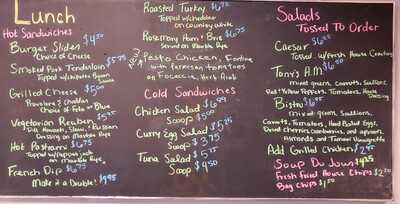 Lunch
Hot Sandwiches
Burger Slider $4.50
Choice of Cheese
Smoked Pork Tenderloin $5.75
Topped w/
Grilled Cheese $5.00
Provolone & Cheddar
Choice of Feta or Blue
Vegetarian Reuben $5.95
Dill Havarti, Slaw, Russian
Dressing on Marble Rye
Hot Pastrami $6.75
Topped w/ pepper jack
on Marble Rye
French Dip $6.75
Make it a Double! $9.95
Roasted Turkey $6.75
Topped w/cheddar
on country white
Rosemary Ham & Brie $6.75
Served on Marble Rye
Pesto Chicken, Fontina
tomatoes
on Focaccia, herb Aioli
Cold Sandwiches
Chicken Salad $6.99
Scoop $5.00
Curry Egg Salad $5.25
Scoop $3.75
Tuna Salad $5.75
Scoop $4.50
Salads
Tossed To Order
Caesar
Topped w/ Fresh House Croutons
Tony's A.M.
mixed greens, Carrots, Scallions
Red & Yellow Peppers, Tomatoes, House
Dressing
Bistro
mixed greens, Scallions,
Carrots, Tomatoes, Hard Boiled Eggs,
Dried cherries, cranberries, and apricots,
Almonds and Tomato Vinaigrette
Add Grilled Chicken $2.95
Soup Du Jour $4.25
Fresh Fried House Chips $2.50
Bag Chips $1.50